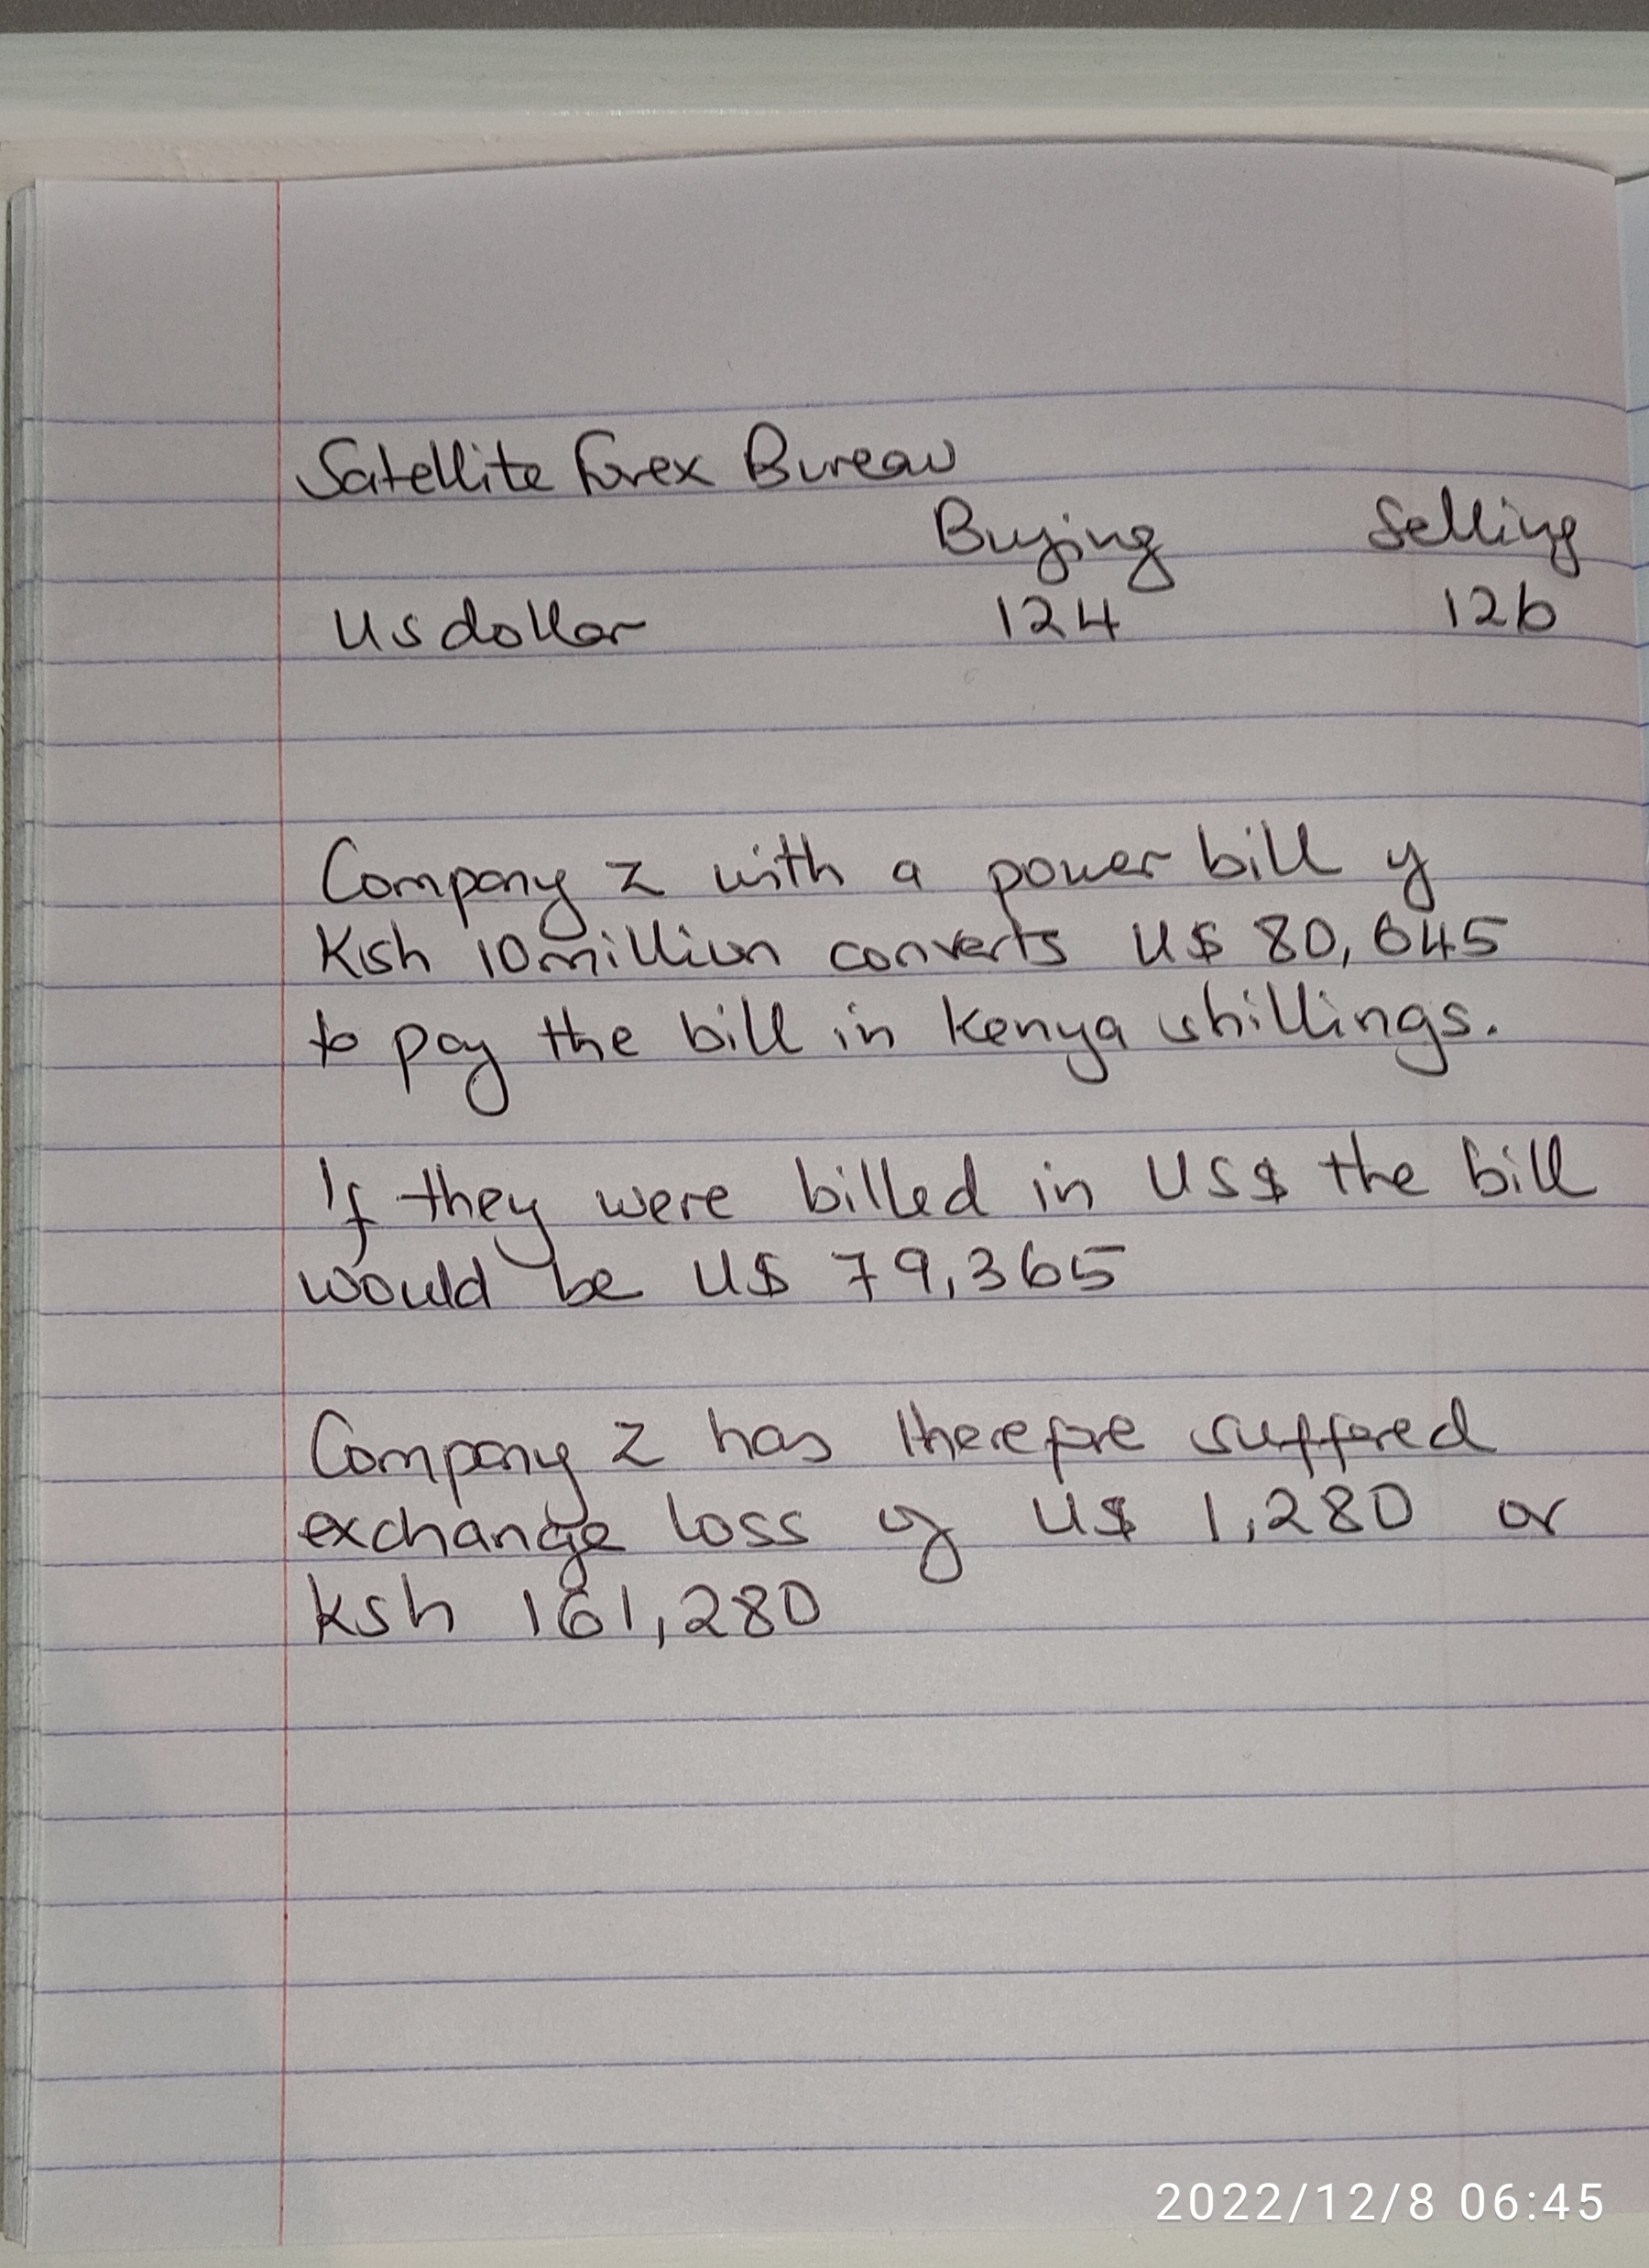 Satellite Forex Bureau
Buying Selling
US dollar 124 126
Company Z with a power bill of
Ksh 10 million converts U$ 80,645
to pay the bill in Kenya shillings.
If they were billed in US$ the bill
would be U$ 79,365
Company Z has therefore suffered
exchange loss of U$ 1,280 or
Ksh 161,280
2022/12/8 06:45